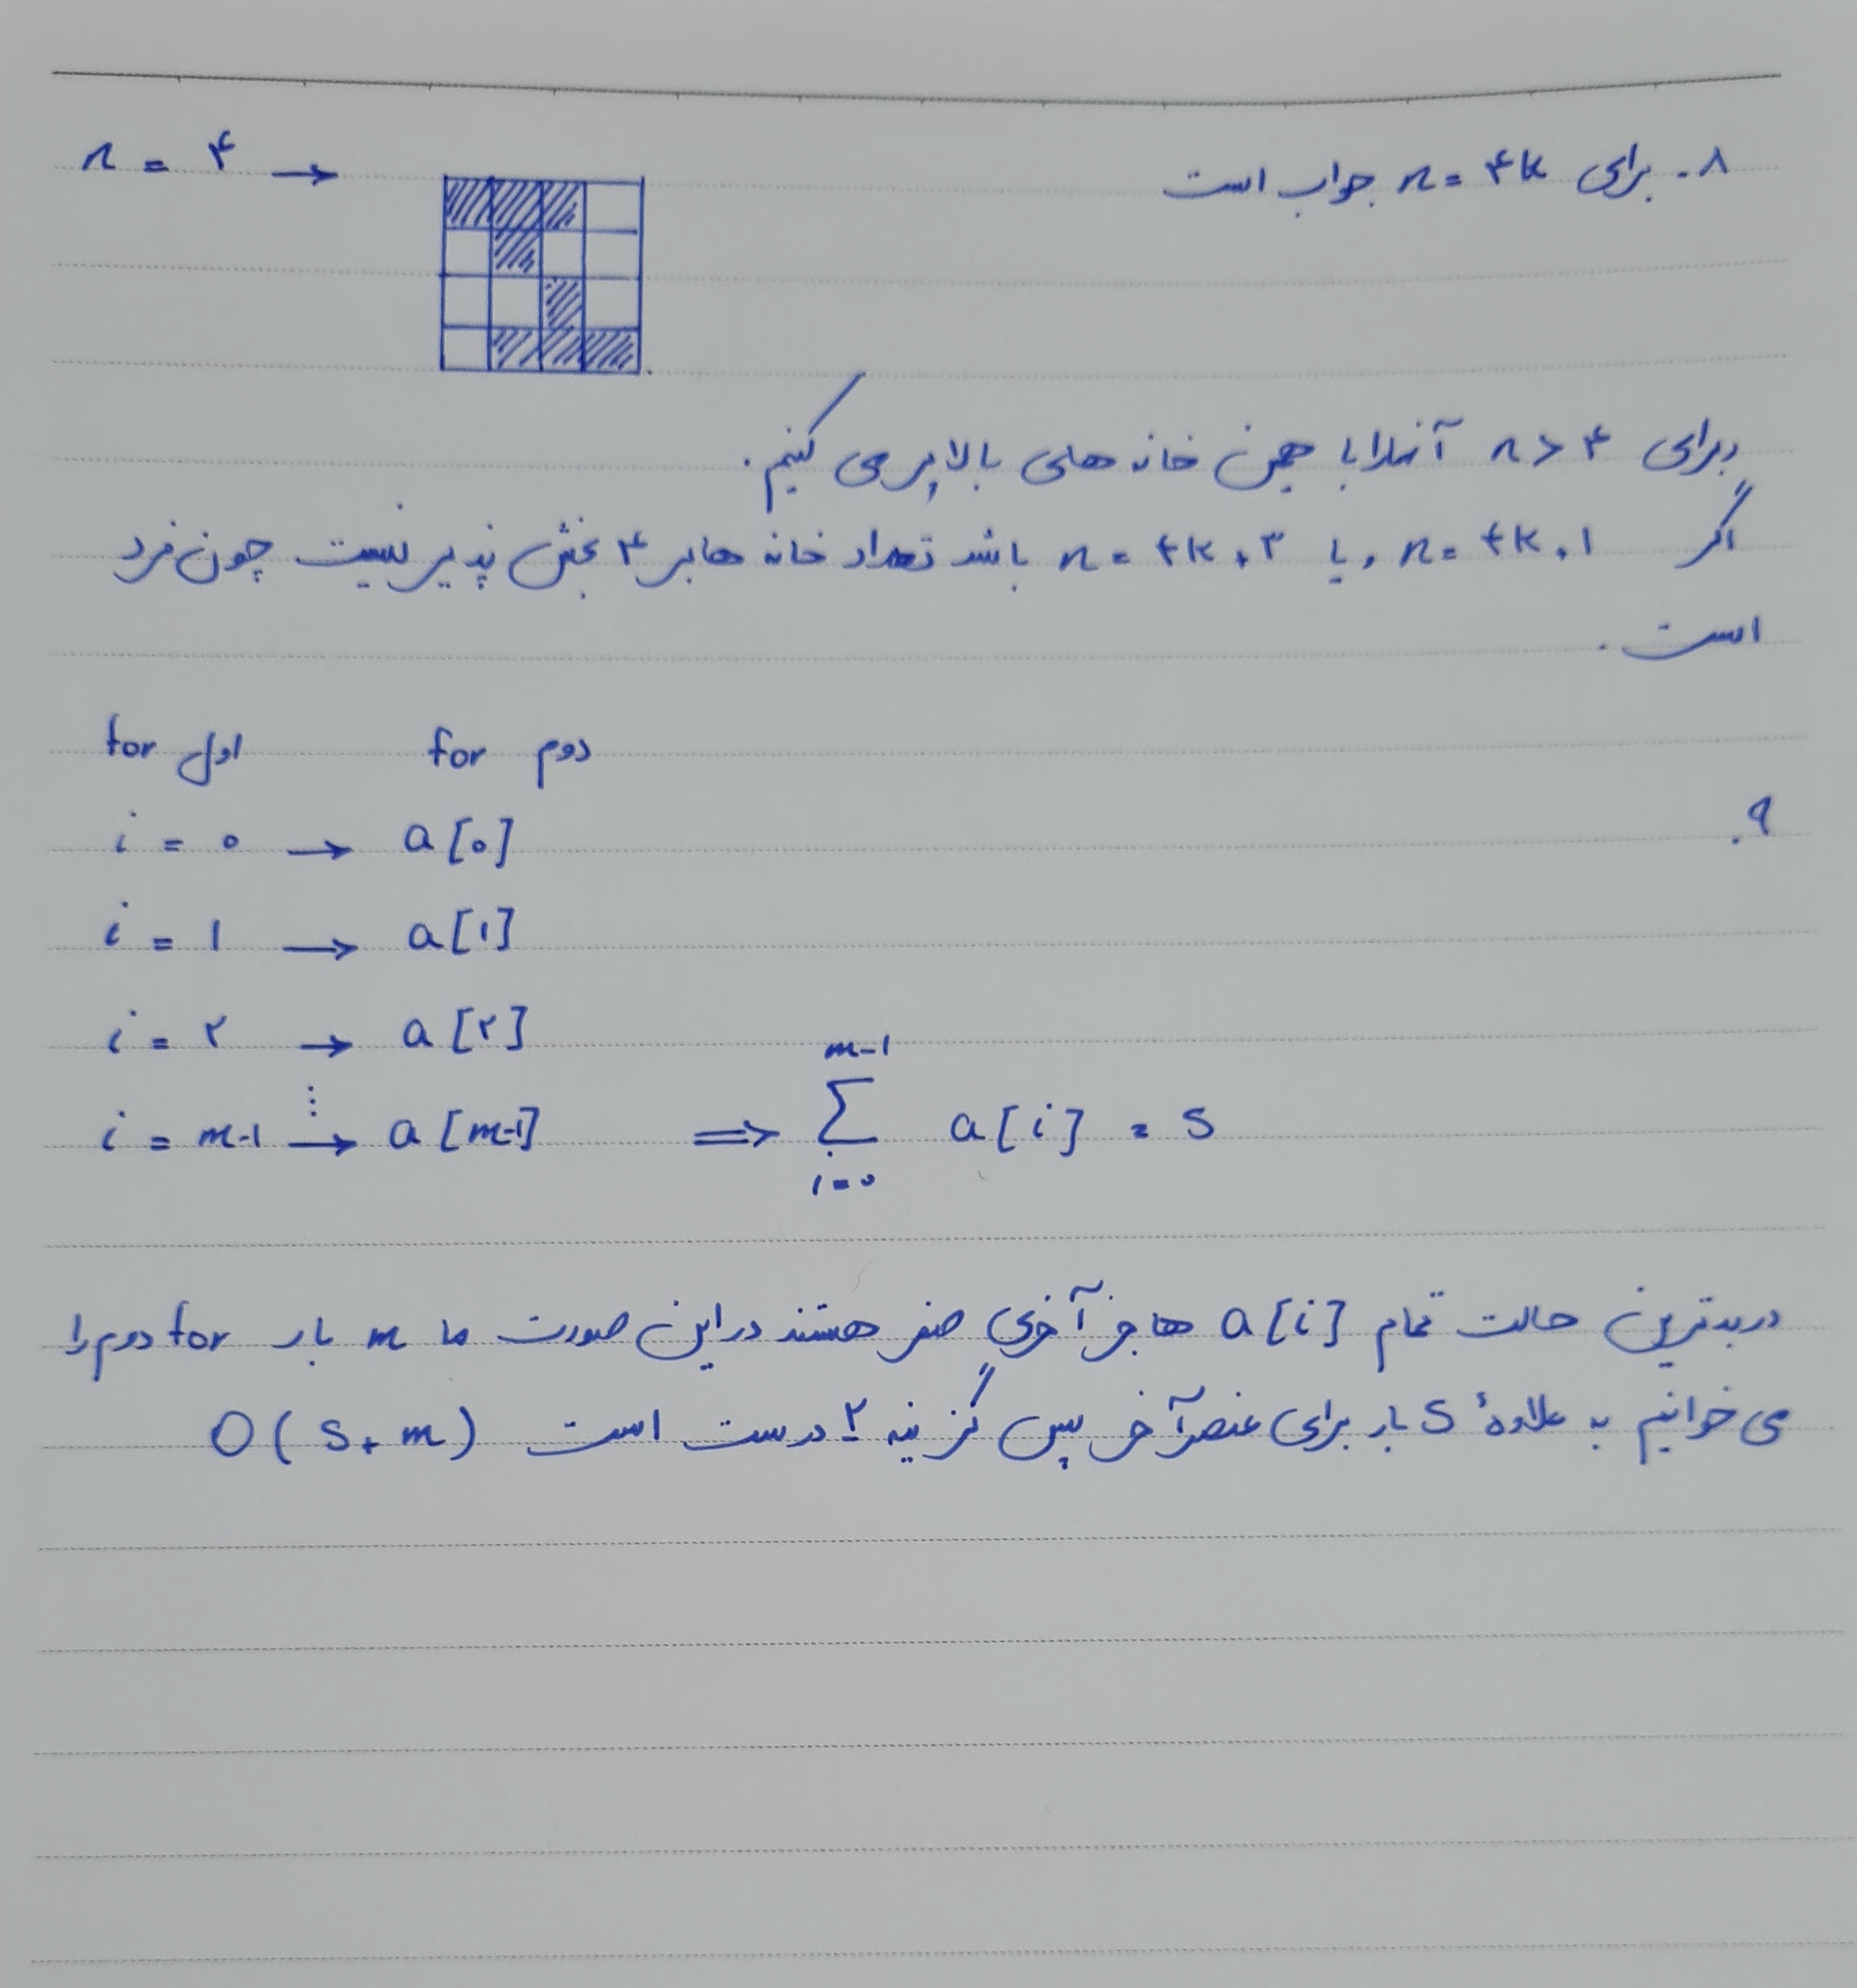 ۸. برای n = ۴k جواب است
n = ۴ →
برای n > ۴ آنها را با همین خانه های بالا پر می کنیم.
اگر n = ۴k + ۱ و یا n = ۴k + ۳ باشد تعداد خانه ها بر ۴ بخش پذیر نیست چون فرد
است.
for اول for دوم
۹.
i = ۰ → a[۰]
i = ۱ → a[۱]
i = ۲ → a[۲]
⋮
i = m-1 → a[m-1] ⟹ ∑_{i=۰}^{m-1} a[i] = S
در بدترین حالت تمام a[i] ها جز آخری صفر هستند در این صورت ما m بار for دوم را
می خوانیم به علاوهٔ S بار برای عنصر آخر پس گزینه ۲ درست است O(S+m)